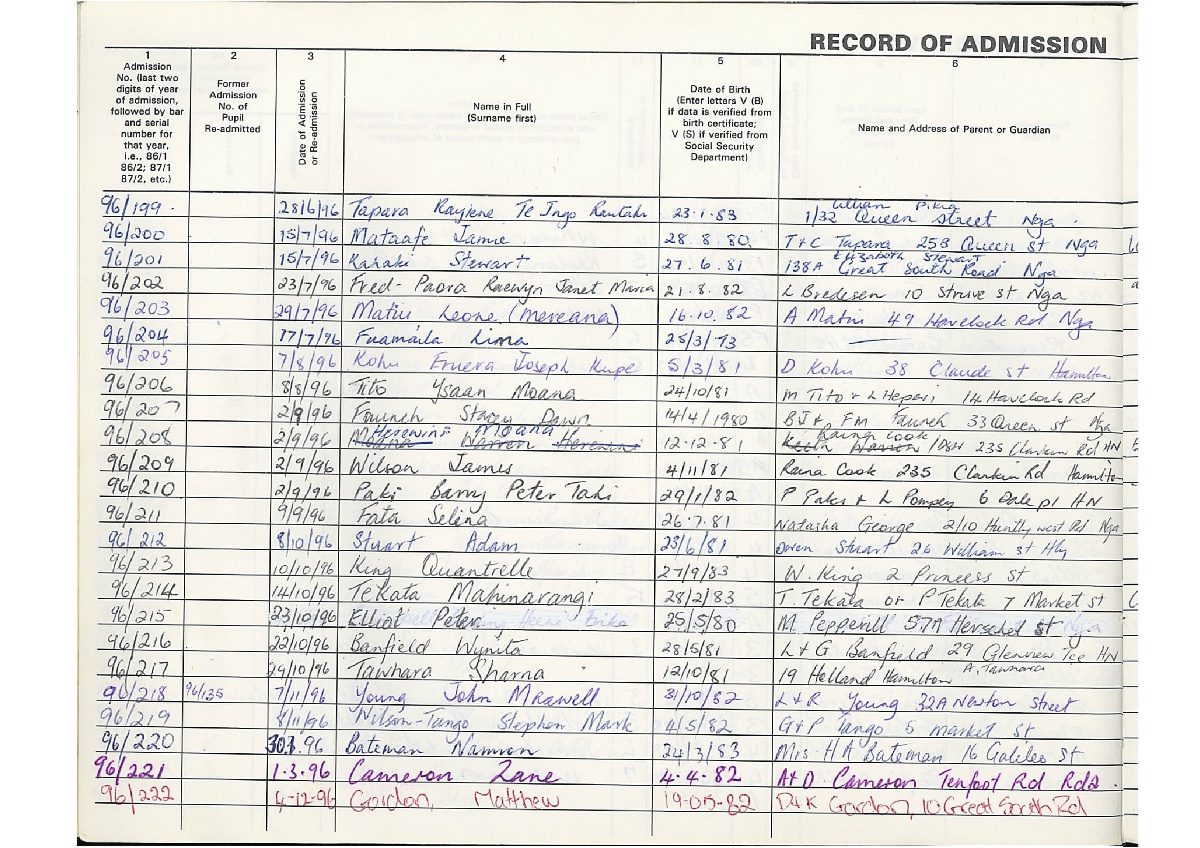 RECORD OF ADMISSION
1 2 3 4 5 6
Admission No. (last two digits of year of admission, followed by bar and serial number for that year, i.e., 86/1 86/2; 87/1 87/2, etc.)
Former Admission No. of Pupil Re-admitted
Date of Admission or Re-admission
Name in Full (Surname first)
Date of Birth (Enter letters V (B) if data is verified from birth certificate; V (S) if verified from Social Security Department)
Name and Address of Parent or Guardian
96/199 28/6/96 Tapara Te Ingo 23.1.83 Pikia 1/32 Queen street Nga
96/200 15/7/96 Mataafe Jamie 28.8.80 T+C Tapara 25B Queen st Nga
96/201 15/7/96 Kahaki Stewart 27.6.81 Elizabeth Stewart 138A Great South Road Nga
96/202 23/7/96 Fred-Paora Raewyn Janet Maria 21.8.82 L Bredesen 10 Struve st Nga
96/203 29/7/96 Matiu Leone (Mereana) 16.10.82 A Matiu 49 Havelock Rd Nga
96/204 17/7/96 Fuamaila Lima 25/3/73
96/205 7/8/96 Kohu Eruera Joseph Kupe 5/3/81 D Kohu 38 Claude st Hamilton
96/206 8/8/96 Tito Ysaan Moana 24/10/81 M Tito + L Hepari 14 Havelock Rd
96/207 2/9/96 Faunch Stacey Dawn 14/4/1980 BJ + FM Faunch 33 Queen st Nga
96/208 2/9/96 Herewini Moana Warren Herewini 12-12-81 Raina Cook Warren 235 Clarkin Rd HN
96/209 2/9/96 Wilson James 4/11/81 Raina Cook 235 Clarkin Rd Hamilton
96/210 2/9/96 Paki Barry Peter Tahi 29/1/82 P Paki + L Pompey 6 Dale pl HN
96/211 9/9/96 Fata Selina 26.7.81 Natasha George 2/10 Huntly west Rd Nga
96/212 8/10/96 Stuart Adam 23/6/81 Owen Stuart 26 William st Hly
96/213 10/10/96 King Quantrelle 27/9/83 W. King 2 Princess St
96/214 14/10/96 Tekata Mahinarangi 28/2/83 T. Tekata or P Tekata 7 Market st
96/215 23/10/96 Elliot Peter 25/5/80 M Pepperill 57A Herschel St Nga
96/216 22/10/96 Banfield Wynita 28/5/81 L + G Banfield 29 Glenview Tce HN
96/217 29/10/96 Tawhara Sharna 12/10/81 19 Helland Hamilton A. Tawhara
96/218 96/135 7/11/96 Young John Maxwell 31/10/82 L + R Young 32A Newton street
96/219 8/11/96 Wilson-Tango Stephen Mark 4/5/82 G+P Tango 5 market st
96/220 96 Bateman 24/3/83 Mrs H A Bateman 16 Galileo St
96/221 1.3.96 Cameron Zane 4.4.82 A+D Cameron Tenfoot Rd Rd2
96/222 4-12-96 Gordon, Matthew 19-05-82 D+K Gordon, 10 Great South Rd